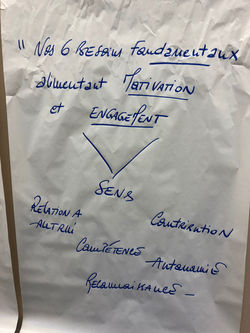 " Nos 6 Besoins fondamentaux
alimentant MOTIVATION
et ENGAGEMENT
SENS
RELATION A
AUTRUI
Contribution
Compétence
Autonomie
Reconnaissance -